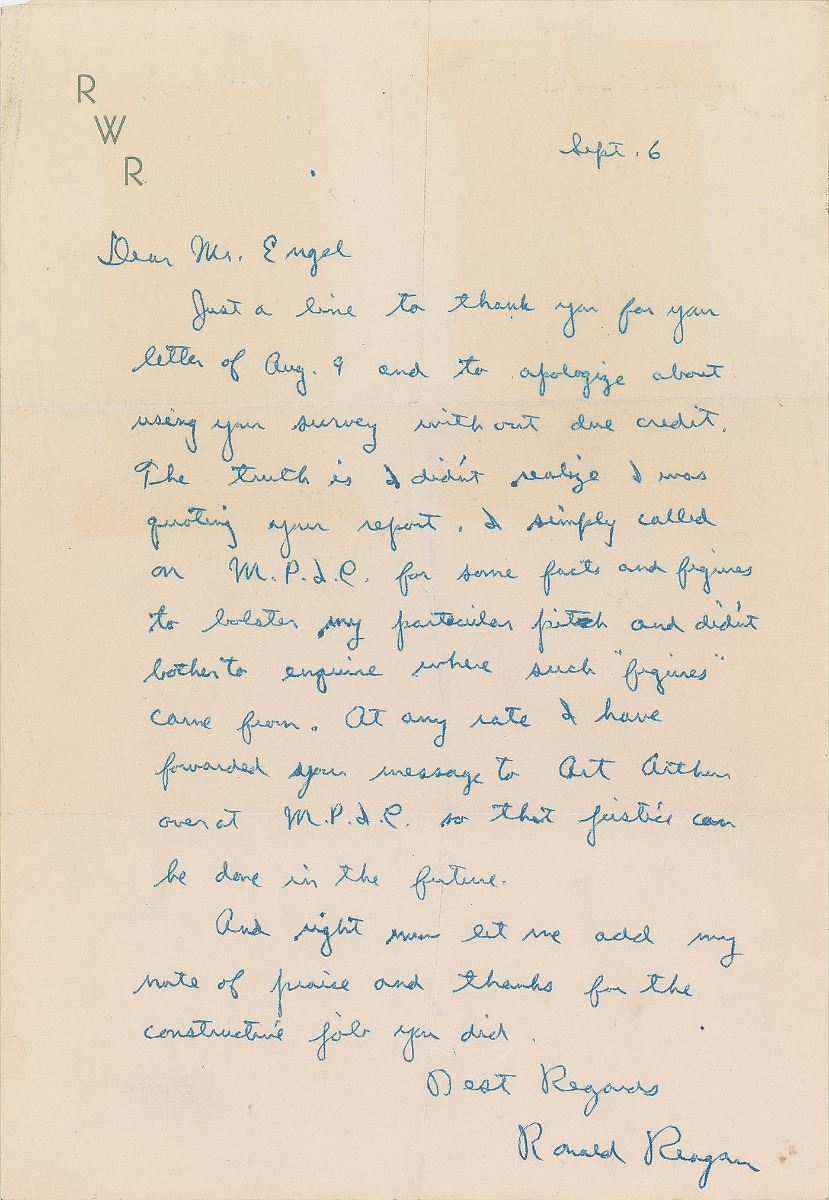 R
W
R
Sept. 6
Dear Mr. Engel
Just a line to thank you for your
letter of Aug. 9 and to apologize about
using your survey without due credit.
The truth is I didn't realize I was
quoting your report. I simply called
on M.P.I.C. for some facts and figures
to bolster my particular pitch and didn't
bother to enquire where such "figures"
came from. At any rate I have
forwarded your message to Art Arthur
over at M.P.I.C. so that justice can
be done in the future.
And right now let me add my
note of praise and thanks for the
constructive job you did.
Best Regards
Ronald Reagan